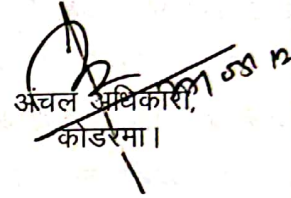 अंचल अधिकारी,
कोडरमा।